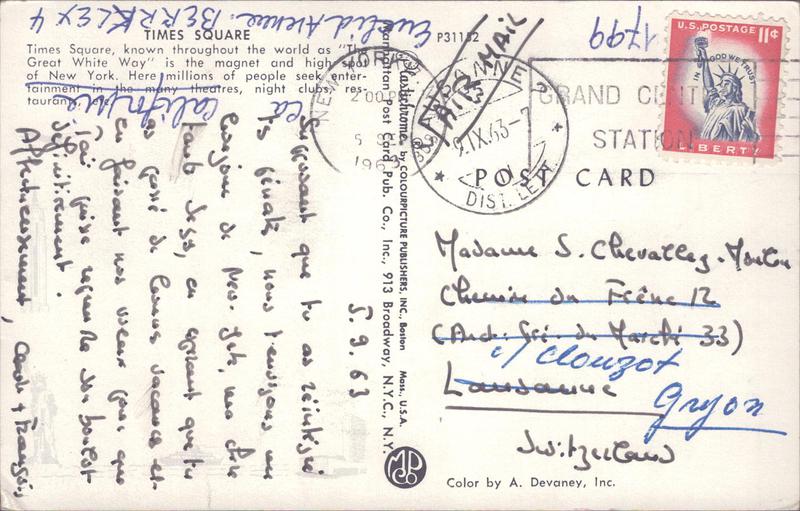 1799
Euclid Avenue. BERKLEY 4
California
TIMES SQUARE
Times Square, known throughout the world as "The
Great White Way" is the magnet and high spot
of New York. Here millions of people seek enter-
tainment in the many theatres, night clubs, res-
taurants, etc.
P31182
AIR MAIL
NEW YORK
2 00 PM
LAUSANNE
9.IX.63-7
DIST. LETT.
GRAND CENT
STATION
U.S. POSTAGE 11¢
IN GOD WE TRUST
LIBERTY
POST CARD
Plastichrome by COLOURPICTURE PUBLISHERS, INC., Boston Mass., U.S.A.
Manhattan Post Card Pub. Co., Inc., 913 Broadway, N.Y.C., N.Y.
5.9.63
Supposant que tu as réintégré
tes pénates, nous t'envoyons un
bonjour de New-York, ma chère
tante Suzy, en espérant que tu
as passé de bonnes vacances et
en faisant nos vœux pour que
j'ai puisse
définitivement.
Affectueusement,
& François
Madame S. Chevalley-
Chemin du Frêne 12
(Anct. du Marché 33)
c/ Clouzot
Lausanne
Gryon
Switzerland
MPC
Color by A. Devaney, Inc.